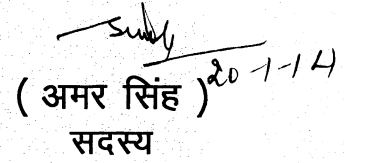 20-1-14
( अमर सिंह )
सदस्य